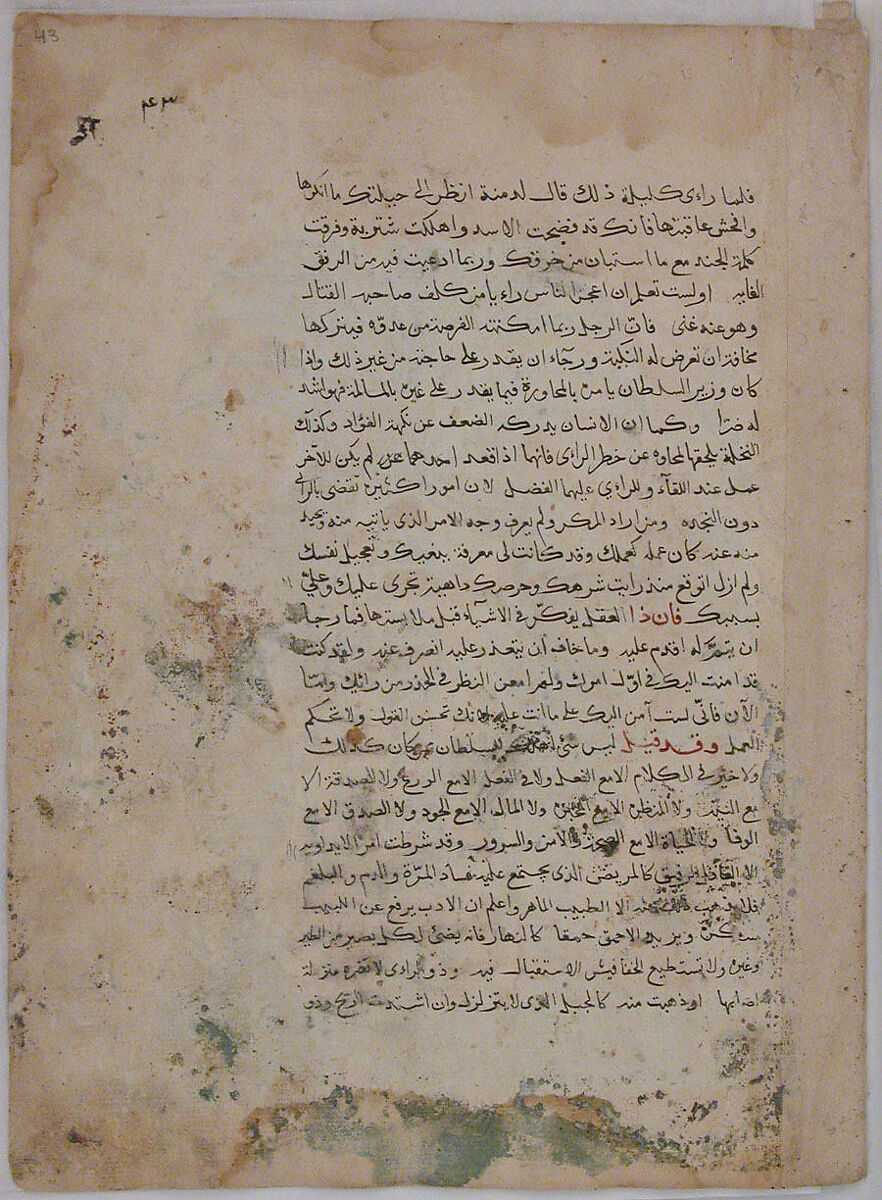 43
٤٣
فلما راءى كليلة ذلك قال لدمنة انظر الى حيلتك ما انكرها
وافحش عاقبتها فانك قد فضحت الاسد واهلكت شتربة وفرقت
كلمة الجند مع ما استبان من خرقك وربما ادعيت فيه من الرفق
الغايه اولست تعلم ان اعجز الناس راءيا من كلف صاحبه القتال
وهو عنه غنى فان الرجل ربما امكنته الفرصة من عدوّه فيتركها
مخافة ان تعرض له النكبة ورجاء ان يقدر على حاجته من غير ذلك واذا
كان وزير السلطان يامره بالمحاورة فيما يقدر على غيره بالمسالمة فهو اشد
له ضرّا وكما ان الانسان يدركه الضعف عن نكهة الفؤاد وكذلك
النخلة يلحقها المحاوه عن خطر الراءى فانهما اذا فعد احدهما عن لم يكن للآخر
عمل عند اللقآء وللراءى عليهما الفضل لان امورا كثيرة تقضى بالراى
دون النجده ومن اراد المكر ولم يعرف وجه الامر الذى ياتيه منه ويحيد
منه عنه كان عمله كعملك وقد كانت لى معرفة ببغيك وتعجيل نفسك
ولم ازل اتوقع منذ رايت شرهك وحرصك داهية تجرى عليك وعلىّ
بسببك فان ذا العقل يفكّر فى الاشيآء قبل ملابستها فما رجا
ان يتمّ له اقدم عليه وما خاف ان يتعذر عليه انصرف عنه ولقد كنت
قد امنت اليك فى اوّل امرك ولم امعن النظر فى الحذر من رائك وامّا
الآن فانّى لست آمن اليك على ما انت عليه لانك تحسن القول ولا تحكم
العمل وقد قيل ليس شئ للسلطان كان كذلك
ولا خير فى الكلام الا مع الفعل ولا فى الفعل الا مع الورع ولا الصدقة الا
مع النيّة ولا المنظر الا مع المخبر ولا المال الا مع الجود ولا الصدق الا مع
الوفا ولا الحياة الا مع الصحة والامن والسرور وقد شرطت امرا لا يداويه
الا العاقل الرفيق كالمريض الذى يجتمع عليه فساد المرّة والدم والبلغم
فلا يذهب عنه الا الطبيب الماهر واعلم ان الادب يرفع عن اللبيب
سكره ويزيد الاحمق حمقا كالنهار فانه يضئ لكل بصير من الطير
وغيره ولا تستطيع الخفافيش الاستقبال فيه وذو الراءى لا تغره منزلة
اصابها او ذهبت منه كالجبل الذى لا يتزلزل وان اشتدت الريح وذو